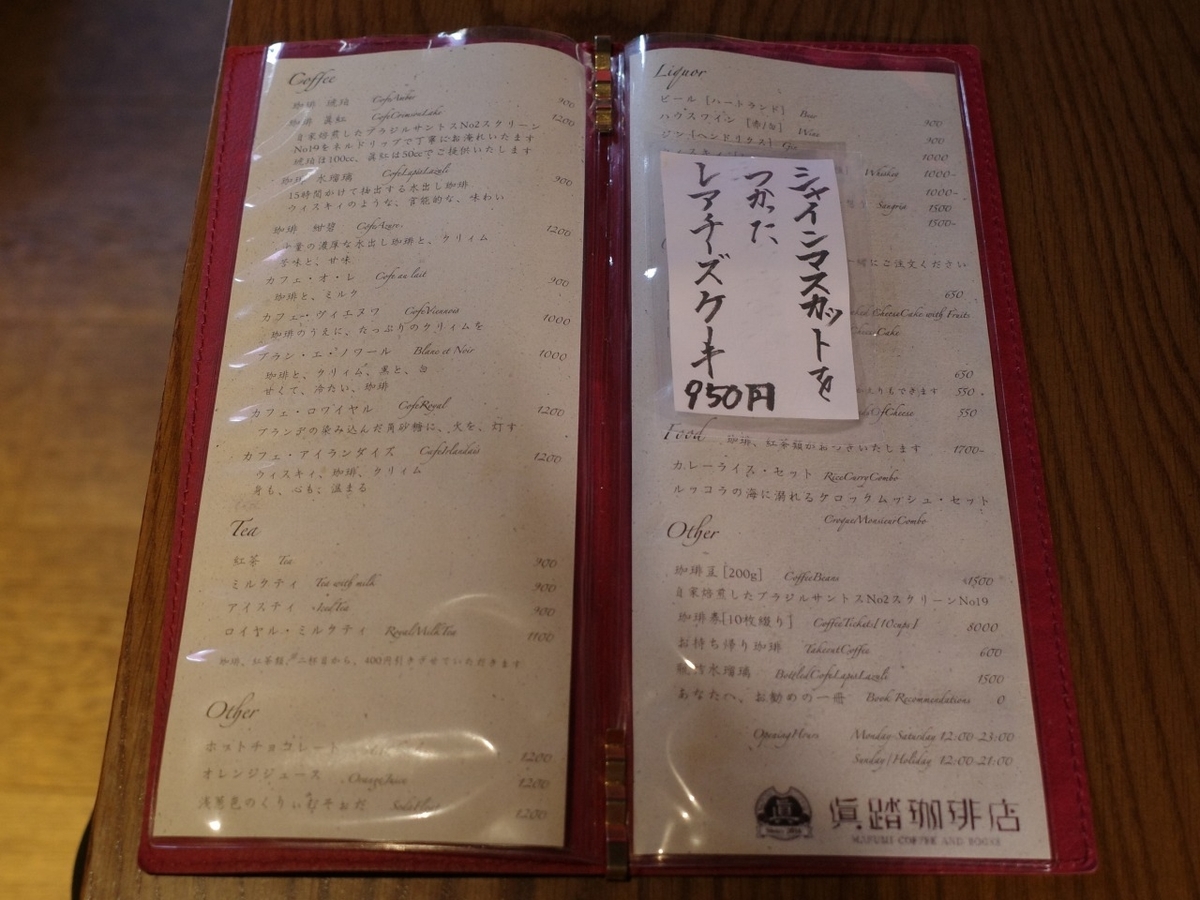 Coffee
珈琲 琥珀 CafeAmber 900
珈琲 眞紅 CafeCrimsonLake 1200
自家焙煎したブラジルサントスNo2スクリーン
No19をネルドリップで丁寧にお淹れいたします
琥珀は100cc、眞紅は50ccでご提供いたします
珈琲 水瑠璃 CafeLapisLazuli 900
15時間かけて抽出する水出し珈琲
ウィスキィのような、官能的な、味わい
珈琲 紺碧 CafeAzure 1200
少量の濃厚な水出し珈琲と、クリィム
苦味と、甘味
カフェ・オ・レ Cafe au lait 900
珈琲と、ミルク
カフェ・ヴィエヌワ CafeViennois 1000
珈琲のうえに、たっぷりのクリィムを
ブラン・エ・ノワール Blanc et Noir 1000
珈琲と、クリィム、黒と、白
甘くて、冷たい、珈琲
カフェ・ロワイヤル CafeRoyal 1200
ブランデの染み込んだ角砂糖に、火を、灯す
カフェ・アイランダイズ CafeIrlandais 1200
ウィスキィ、珈琲、クリィム
身も、心も、温まる
Tea
紅茶 Tea 900
ミルクティ Tea with milk 900
アイスティ IcedTea 900
ロイヤル・ミルクティ RoyalMilkTea 1100
珈琲、紅茶類、二杯目から、400円引きさせていただきます
Other
ホットチョコレート 1200
オレンジジュース OrangeJuice 1200
浅葱色のくりぃむそぉだ SodaFloat 1200
Liquor
ビール [ハートランド] Beer 900
ハウスワイン [赤/白] Wine 900
ジン [ヘンドリクス] Gin 1000
Whiskey 1000~
1000~
Sangria 1500
1500~
シャインマスカットを
つかった、
レアチーズケーキ
950円
一緒にご注文ください
650
Baked CheeseCake with Fruits
Cheese Cake
650
もできます 550
OfCheese 550
Food 珈琲、紅茶類がおつきいたします 1700~
カレーライス・セット RiceCurryCombo
ルッコラの海に溺れるクロックムッシュ・セット
CroqueMonsieurCombo
Other
珈琲豆 [200g] CoffeeBeans 1500
自家焙煎したブラジルサントスNo2スクリーンNo19
珈琲券[10枚綴り] CoffeeTickets[10cups] 8000
お持ち帰り珈琲 TakeoutCoffee 600
水瑠璃 BottledCafeLapisLazuli 1500
あなたへ、お勧めの一冊 Book Recommendations 0
OpeningHours Monday-Saturday 12:00-23:00
Sunday/Holiday 12:00-21:00
眞
眞踏珈琲店
MAFUMI COFFEE AND BOOKS